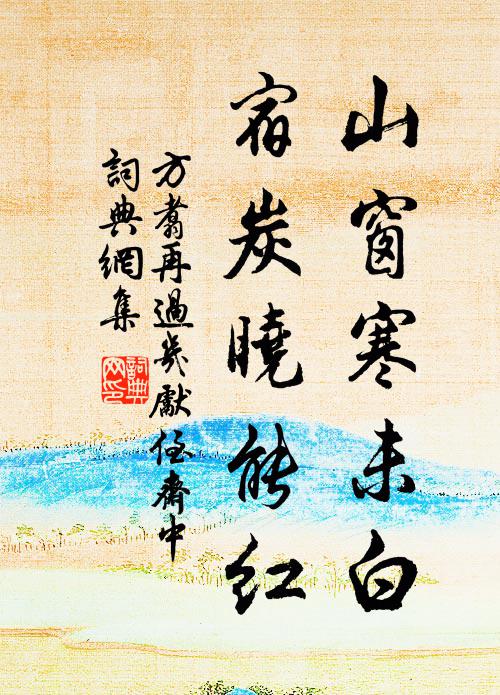 山窗寒未白
宿炭曉能紅
方翥再過炭獻任齋中
詞典網集
詞典
网印